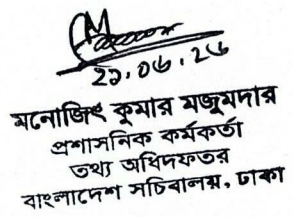 ২১.০৬.২৬
মনোজিৎ কুমার মজুমদার
প্রশাসনিক কর্মকর্তা
তথ্য অধিদফতর
বাংলাদেশ সচিবালয়, ঢাকা